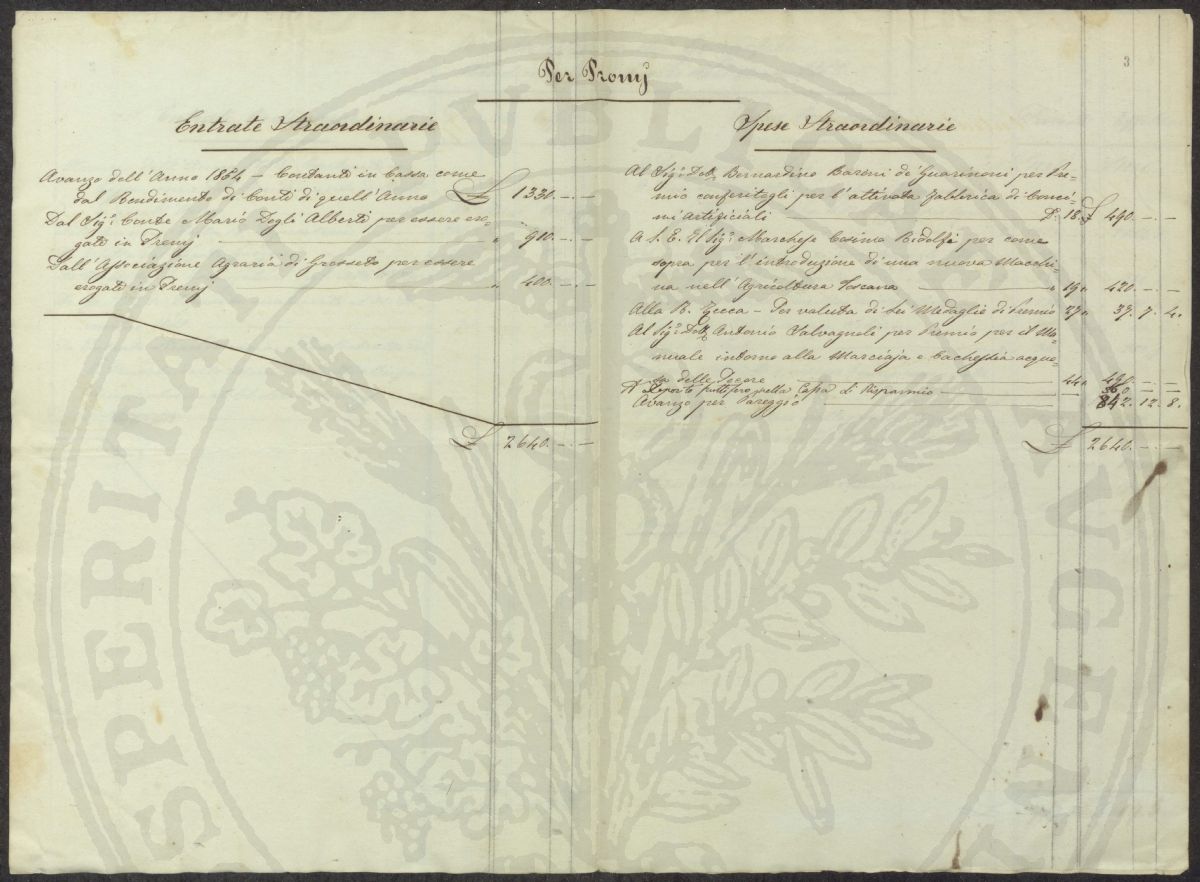 3
Per Premj
Entrate Straordinarie
Avanzo dell'Anno 1854 – Contanti in Cassa come
dal Rendimento di Conti di quell'Anno £ 1330. – –
Dal Sigr. Conte Mario Degli Alberti per essere ero-
gate in Premj " 910. – –
Dall'Associazione Agraria di Grosseto per essere
erogati in Premj " 400. – –
£ 2640. – –
Spese Straordinarie
Al Sigr. Dott. Bernardino Baroni de' Guarinoni per Pre-
mio conferitogli per l'attivata fabbrica di Conci-
mi artificiali D. 18. £ 490. – –
A S. E. Il Sigr. Marchese Cosimo Ridolfi per come
sopra per l'introduzione di una nuova Macchi-
na nell'Agricoltura Toscana " 19 " 420. – –
Alla R. Zecca – Per valuta di Sei Medaglie di Premio 27 " 37. 7. 4.
Al Sigr. Dott. Antonio Salvagnoli per Premio per il Ma-
nuale intorno alla Marciaja o Cachessia acquo-
sa delle Pecore 44 " – –
Deposto fruttifero nella Cassa di Risparmio – –
Avanzo per Pareggio 842. 12. 8.
£ 2640. – –
PERITATI PUBLI AUGEN